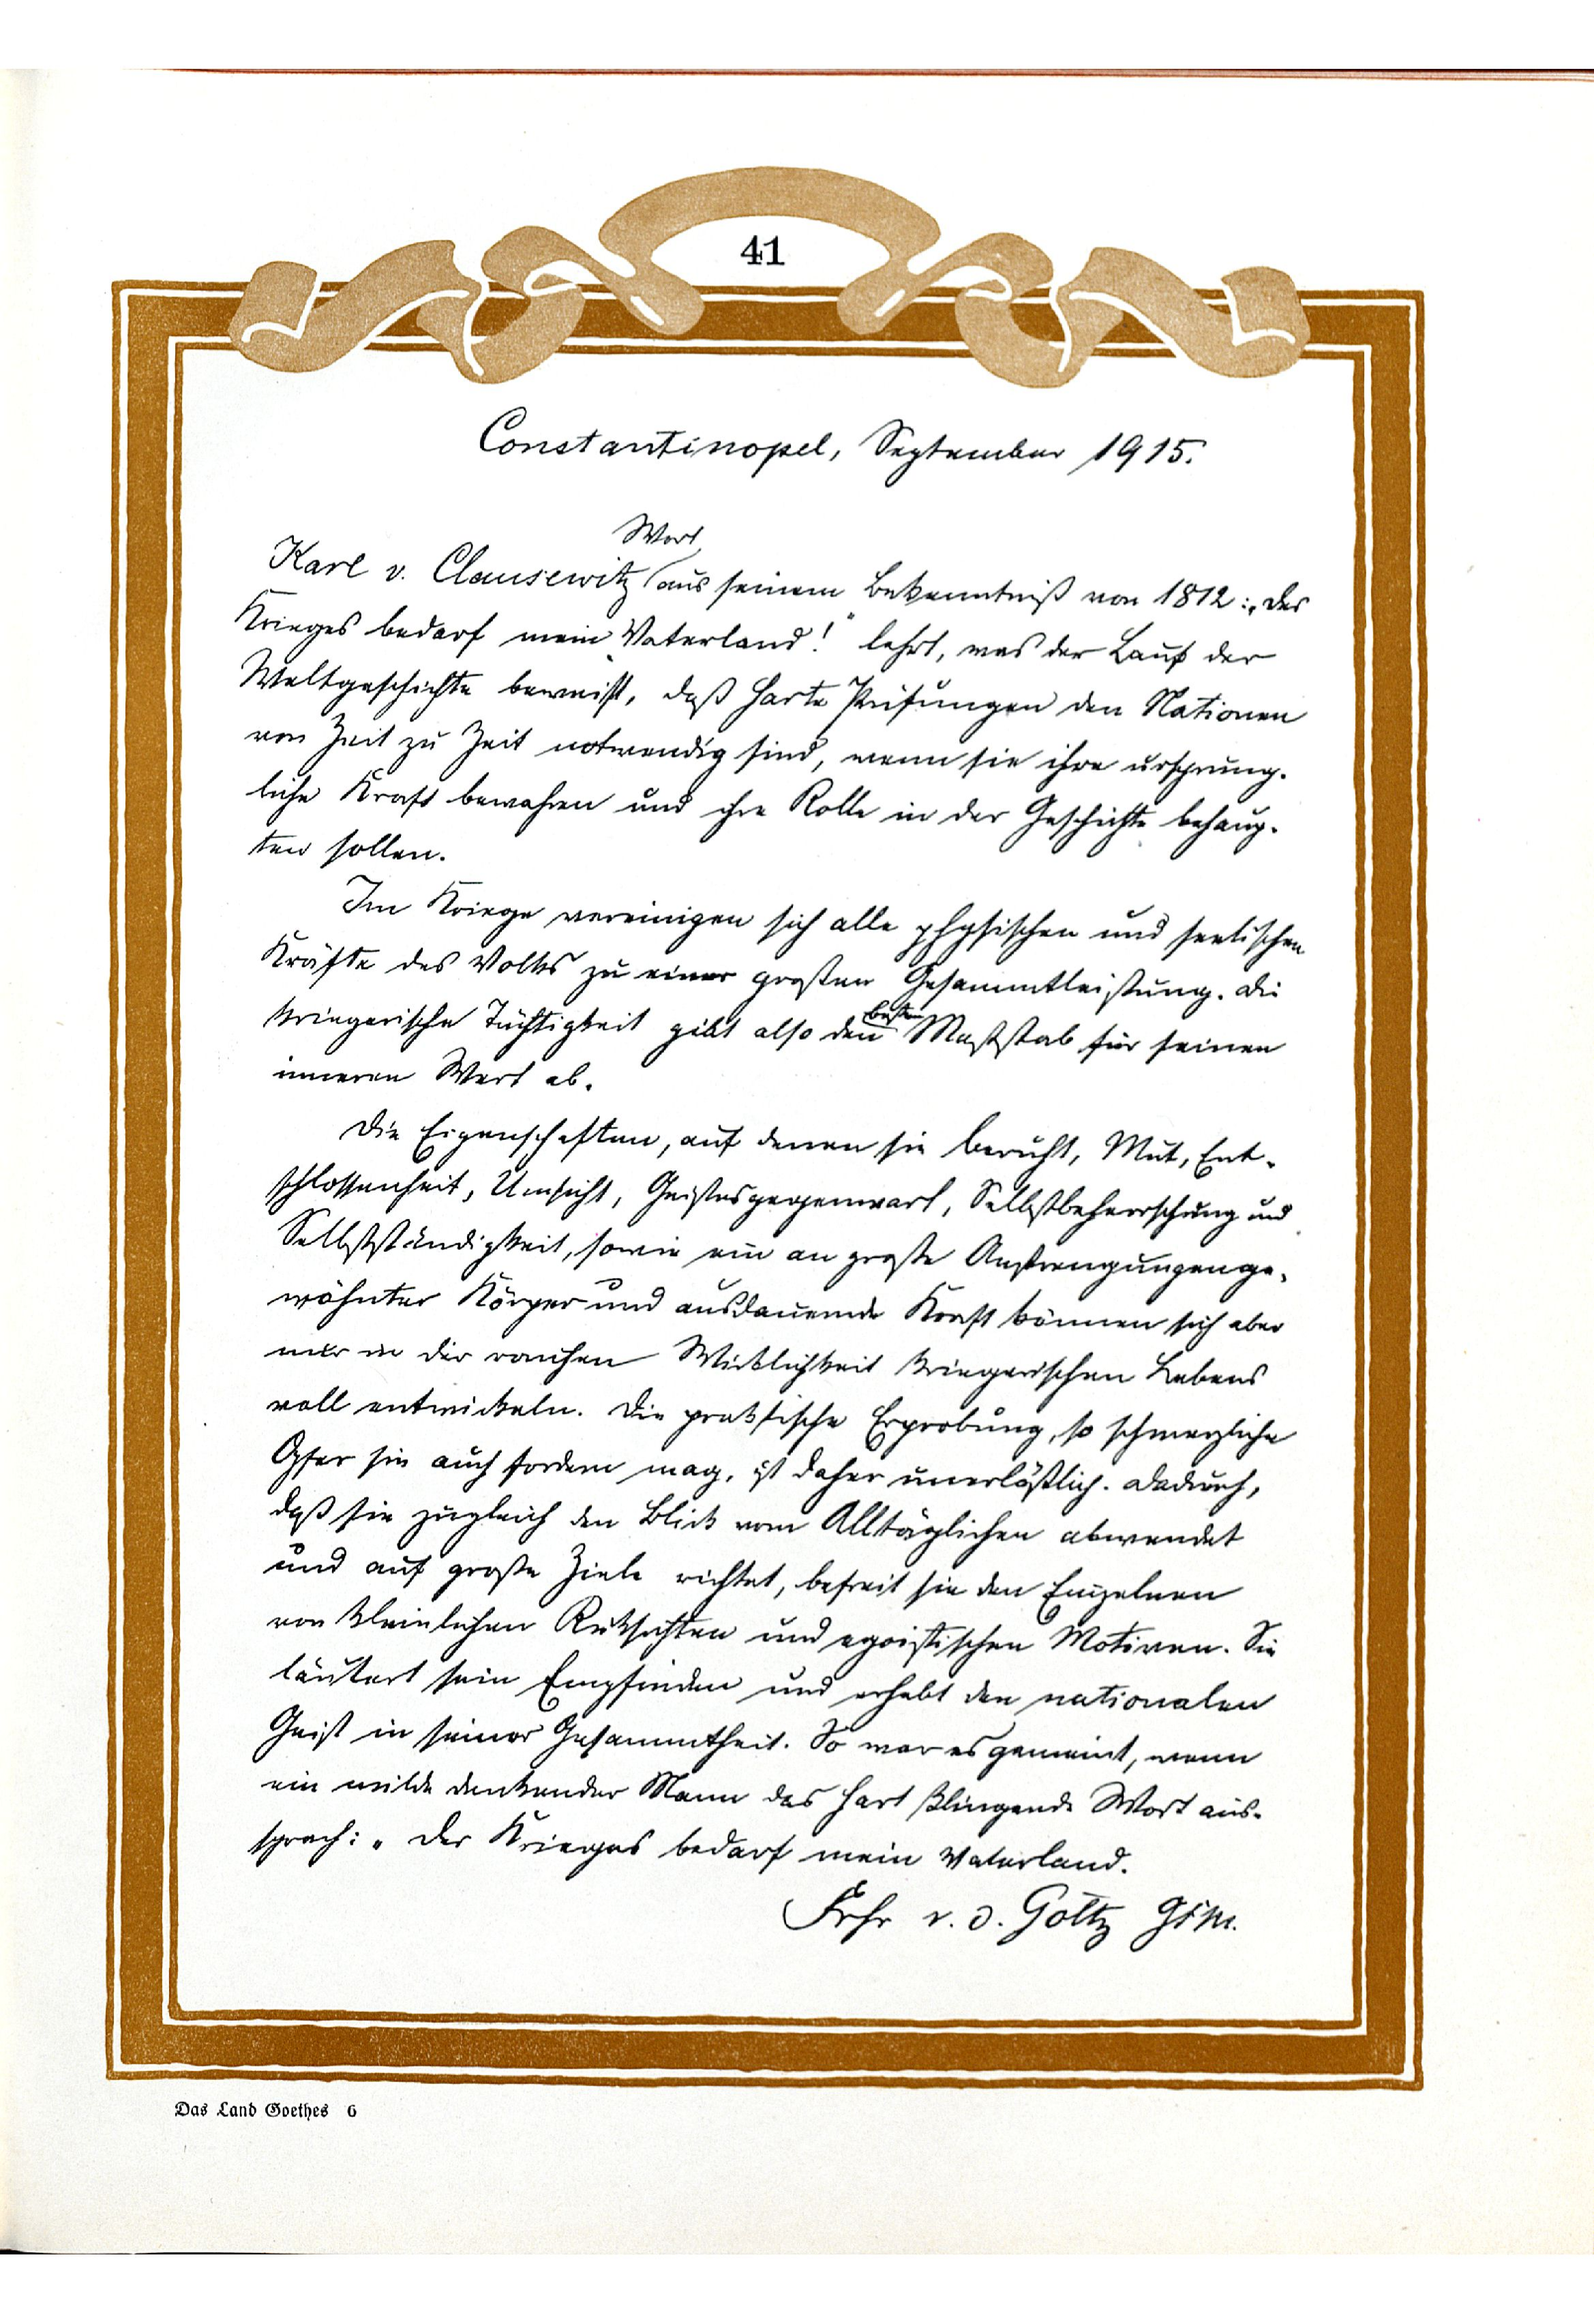 41
Constantinopel, September 1915.
Wort
Karl v. Clausewitz aus seinem Bekenntniß von 1812: „Des
Krieges bedarf mein Vaterland!“ lehrt, was der Lauf der
Weltgeschichte beweist, daß harte Prüfungen den Nationen
von Zeit zu Zeit notwendig sind, wenn sie ihre ursprüng-
liche Kraft bewahren und ihre Rolle in der Geschichte behaup-
ten sollen.
Im Kriege vereinigen sich alle physischen und seelischen
Kräfte des Volks zu einer großen Gesammtleistung. Die
besten
kriegerische Tüchtigkeit gibt also den Maßstab für seinen
inneren Wert ab.
Die Eigenschaften, auf denen sie beruht, Mut, Ent-
schlossenheit, Umsicht, Geistesgegenwart, Selbstbeherrschung und
Selbstständigkeit, sowie ein an große Anstrengungen ge-
wöhnter Körper und ausdauernde Kraft können sich aber
nur in der rauhen Wirklichkeit kriegerischen Lebens
voll entwickeln. Die praktische Erprobung, so schmerzliche
Opfer sie auch fordern mag, ist daher unerläßlich. Dadurch,
daß sie zugleich den Blick vom Alltäglichen abwendet
und auf große Ziele richtet, befreit sie den Einzelnen
von kleinlichen Rücksichten und egoistischen Motiven. Sie
läutert sein Empfinden und erhebt den nationalen
Geist in seiner Gesammtheit. So war es gemeint, wenn
ein milde denkender Mann das hart klingende Wort aus-
sprach: „Des Krieges bedarf mein Vaterland.
Frhr v. d. Goltz GFM.
Das Land Goethes 6